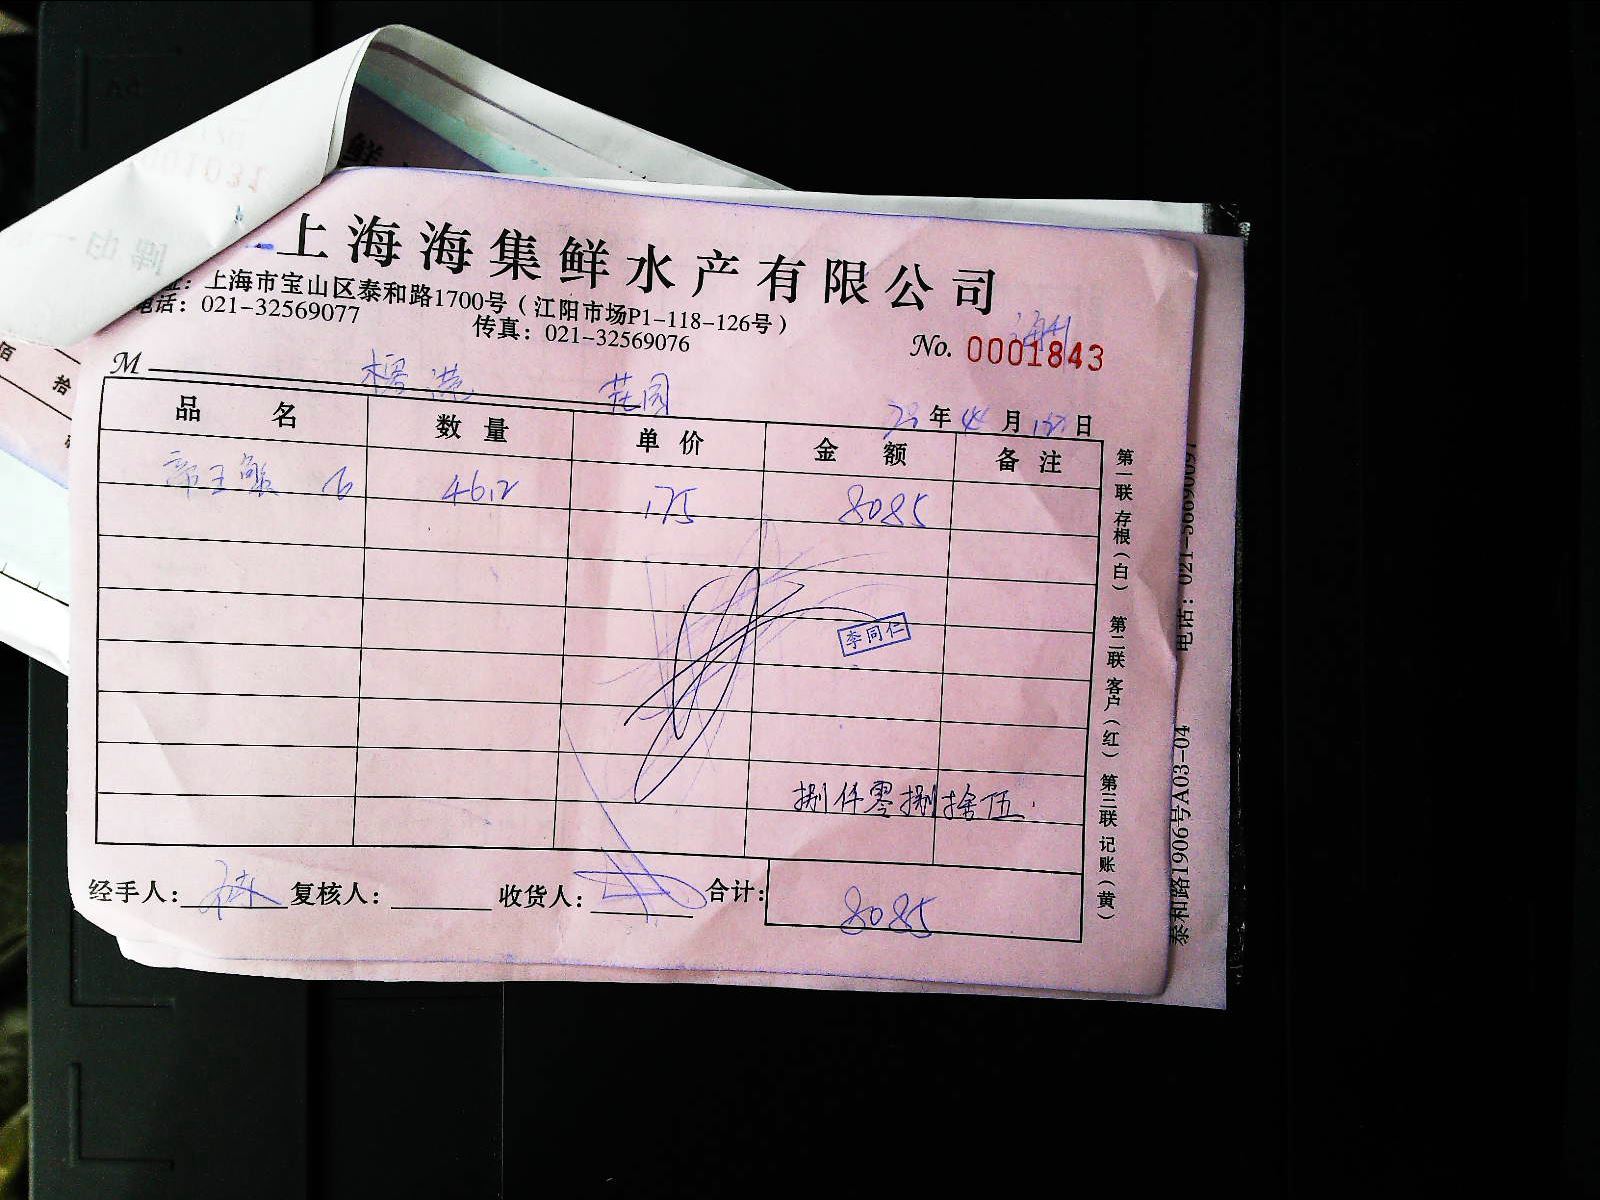 上海海集鲜水产有限公司
址：上海市宝山区泰和路1700号（江阳市场P1-118-126号）
电话：021-32569077 传真：021-32569076
No. 0001843
M 花园
23年4月 日
品名 数量 单价 金额 备注
帝王蟹 46.2 175 8085
李同仁
捌仟零捌拾伍
经手人： 复核人： 收货人： 合计：8085
第一联存根（白） 第二联客户（红） 第三联记账（黄）
泰和路1906号A03-04 电话：021-
鲜
佰
拾